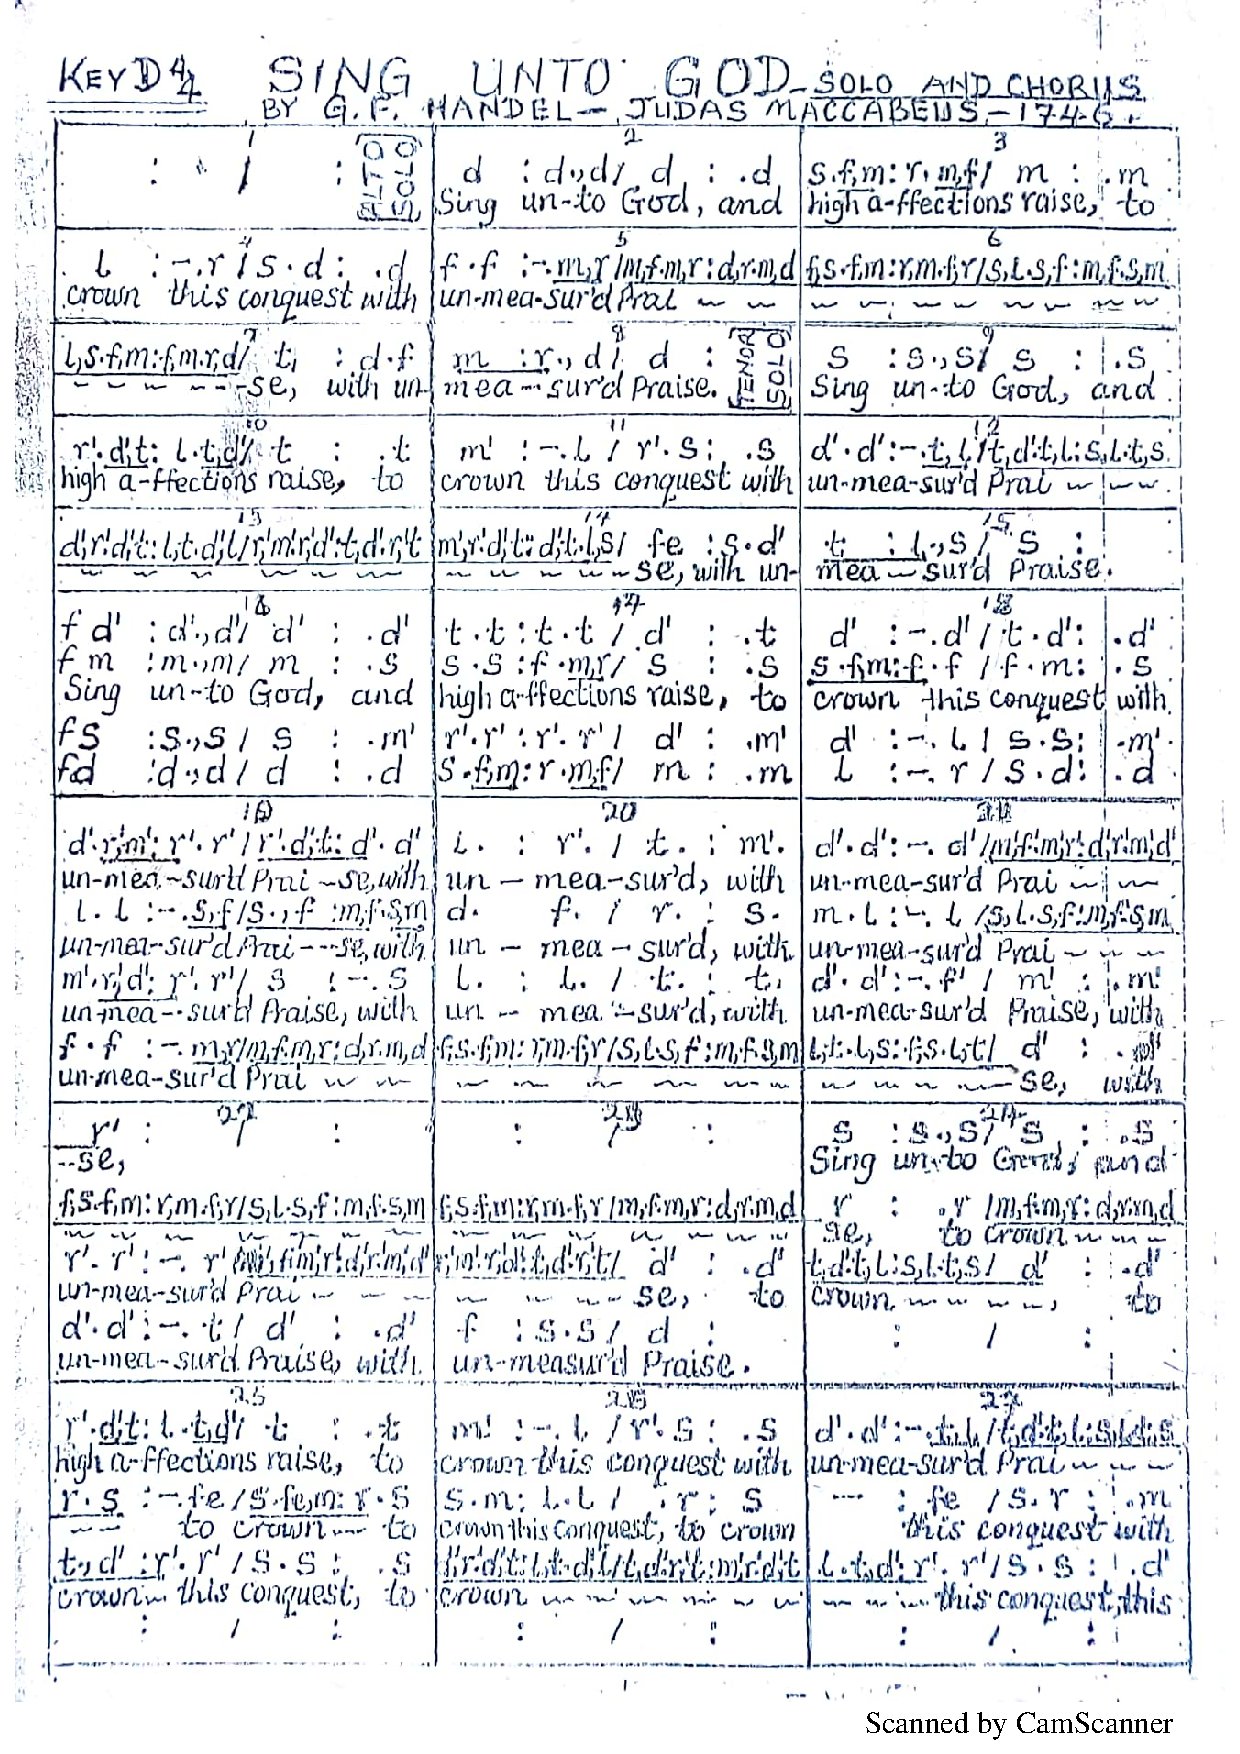 KEY D 4/4 SING UNTO GOD - SOLO AND CHORUS
BY G. F. HANDEL - JUDAS MACCABEUS - 1746.
1 2 3
: . / : ALTO SOLO
d : d.,d / d : .d
Sing un-to God, and
s.f,m : r.m,f / m : .m
high a-ffections raise, to
4 5 6
l : -.r / s.d : .d
crown this conquest with
f.f : -.m,r / m,f.m,r : d,r.m,d
un-mea-sur'd Prai ~ ~
f,s.f,m : r,m.f,r / s,l.s,f : m,f.s,m
7 8 9
l,s.f,m : f,m.r,d / t, : d.f
-se, with un-
m : r.,d / d : TENOR SOLO
mea-sur'd Praise.
s : s.,s / s : .s
Sing un-to God, and
10 11 12
r'.d',t : l.t,d' / t : .t
high a-ffections raise, to
m' : -.l / r'.s : .s
crown this conquest with
d'.d' : -.t,l / t,d'.t,l : s,l.t,s
un-mea-sur'd Prai ~ ~ ~
13 14 15
d',r'.d',t : l,t.d',l / r',m'.r',d' : t,d'.r',t
m',r'.d',t : d',t.l,s / fe : s.d'
-se, with un-
t : l.,s / s :
mea-sur'd Praise.
16 17 18
f d' : d'.,d' / d' : .d'
f m : m.,m / m : .s
Sing un-to God, and
f s : s.,s / s : .m'
f d : d.,d / d : .d
t.t : t.t / d' : .t
s.s : f.m,r / s : .s
high a-ffections raise, to
r'.r' : r'.r' / d' : .m'
s.f,m : r.m,f / m : .m
d' : -.d' / t.d' : .d'
s.f,m : f.f / f.m : .s
crown this conquest with
d' : -.l / s.s : .m'
l : -.r / s.d : .d
19 20 21
d'.r',m' : r'.r' / r'.d',t : d'.d'
un-mea-sur'd Prai-se, with
l.l : -.s,f / s.,f : m,f.s,m
un-mea-sur'd Prai---se, with
m'.r',d' : r'.r' / s : -.s
un-mea-sur'd Praise, with
f.f : -.m,r / m,f.m,r : d,r.m,d
un-mea-sur'd Prai ~ ~
l. : r'. / t. : m'.
un - mea-sur'd, with
d. f. / r. : s.
un - mea-sur'd, with
l. : l. / t. : t.
un - mea-sur'd, with
f,s.f,m : r,m.f,r / s,l.s,f : m,f.s,m
d'.d' : -.d' / m',f'.m',r' : d',r'.m',d'
un-mea-sur'd Prai ~ ~
m.l : -.l / s,l.s,f : m,f.s,m
un-mea-sur'd Prai - ~ ~
d'.d' : -.f' / m' : .m'
un-mea-sur'd Praise, with
l,t.l,s : f,s.l,t / d' :
se, with
22 23 24
r' : / :
-se,
f,s.f,m : r,m.f,r / s,l.s,f : m,f.s,m
r'.r' : -.r'
un-mea-sur'd Prai - - -
d'.d' : -.t / d' : .d'
un-mea-sur'd Praise, with
: / :
f,s.f,m : r,m.f,r / m,f.m,r : d,r.m,d
d' : .d'
se, to
f : s.s / d :
un-measur'd Praise.
s : s.,s / s : .s
Sing un-to God, and
r : .r / m,f.m,r : d,r.m,d
se, to crown ~ ~ ~
t,d'.t,l : s,l.t,s / d' : .d'
crown ~ ~ ~ ~, to
: / :
25 26 27
r'.d',t : l.t,d' / t : .t
high a-ffections raise, to
r.s : -.fe / s.fe,m : r.s
to crown --- to
t,d' : r'.r' / s.s : .s
crown - this conquest, to
: / :
m' : -.l / r'.s : .s
crown this conquest with
s.m : l.l / .r : s
crown this conquest, to crown
crown ~ ~ ~ ~ ~ ~
: / :
d'.d' : -.t,l / t,d'.t,l : s,l.t,s
un-mea-sur'd Prai ~ ~ ~
--- : fe / s.r : .m
this conquest with
l.t,d' : r'.r' / s.s : .d'
this conquest, this
: / :
Scanned by CamScanner